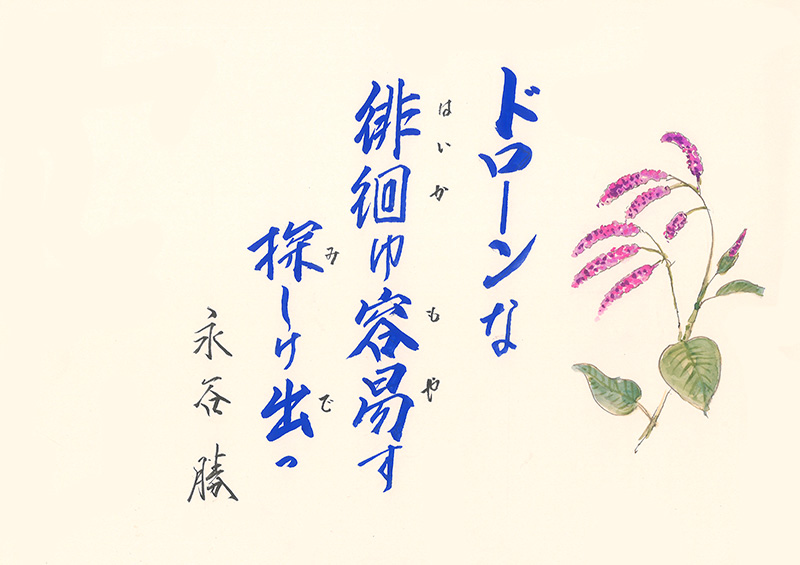 ドローンな
はいか もや
徘徊ゆ容易す
み で
探しけ出っ
永谷勝